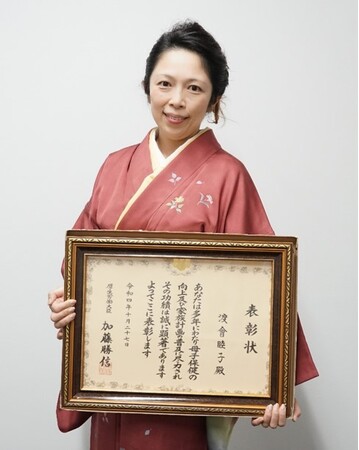 表彰状
渡會睦子殿
あなたは多年にわたり母子保健の
向上及び家族計画の普及に尽力され
その功績は誠に顕著であります
よってここに表彰します
令和四年十月二十七日
厚生労働大臣 加藤勝信